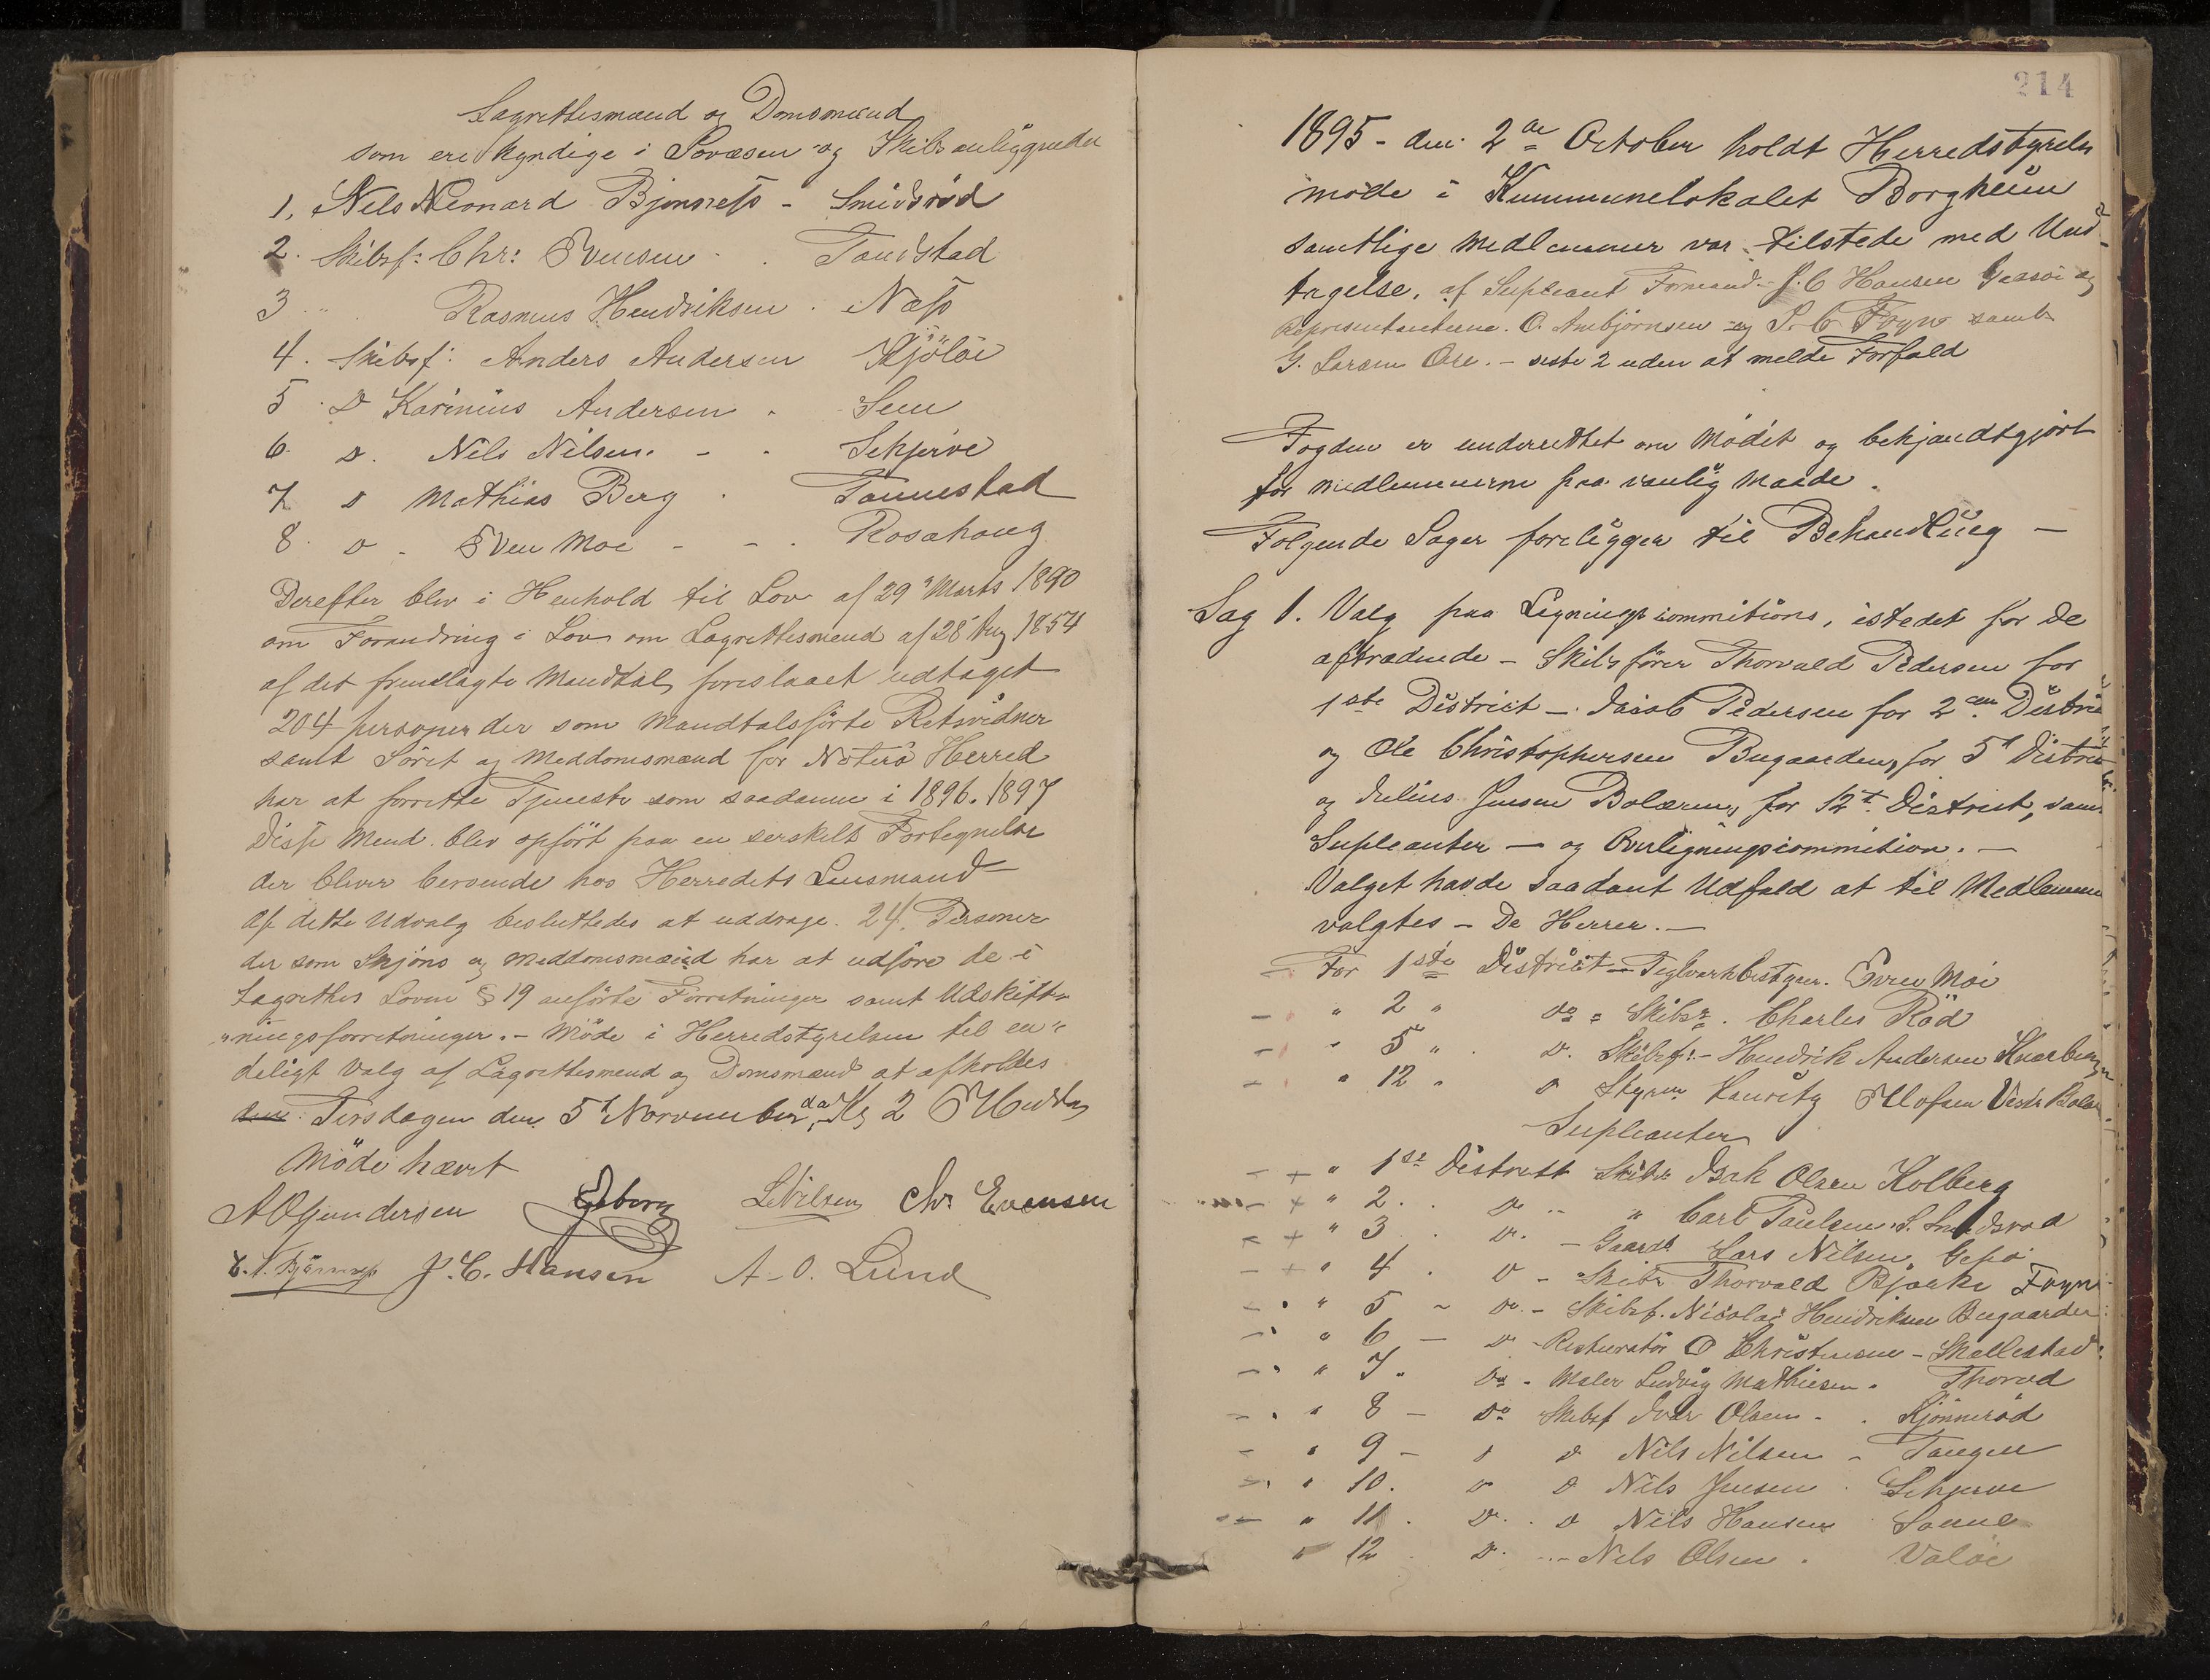 Lagrettesmænd og Domsmænd
som ere kyndige i Søvæsen og Skibsanliggender
1, Nils Leonard Bjønness - Smidsröd
2. Skibsf: Chr: Evensen - . Tandstad
3 " " Rasmus Hendriksen . Næss
4. Skibsf: Anders Andersen Kjölöe
5 . Do Karinius Andersen - Sem
6. Do. Nils Nilsen. - - Schjerve
7 Do Mathias Berg . Tannestad
8. Do - Even Moe - - . Rosahaug
Derefter blev i Henhold til Lov af 29 Marts 1890
om Forandring i Lov om Lagrettesmend af 28 Aug 1854
af det fremlagte Mandtal, foreslaaet udtaget
204 personer der som Mandtalsförte Retsvidner
samt Söret og Meddomsmænd for Nöterö Herred
har at forrette Tjeneste som saadanne i 1896. 1897
Disse Mend. blev opfört paa en serskilt Fortegnelse
der bliver beroende hos Herredets Lensmand
Af dette Udvalg besluttedes at uddrage. 24. Personer
der som Skjöns og Meddomsmænd har at udføre de i
Lagrettes Loven § 19 anförte Forretninger samt Udskift-
"ningsforretninger. - Möde i Herredstyrelsen til en"
deligt Valg af Lagrettesmend og Domsmænd at afholdes
Tirsdagen den 5t November da Kl 2 EMiddag
Möde hævet
A O Gundersen Esborg L Nilsen Chr Evensen
J. C. Hansen A - O. Lund
214
1895 - den 2de October holdt Herredstyrelsen
möde i Kummunelokalet Borgheim
samtlige Medlemmer var tilstede med Und-
tagelse. af Supleant Formand - J. C Hansen og
Representanterne. O. Ambjörnsen og P. C. Foyn samt
G. Larsen Ore. - siste 2 uden at melde Forfald
Fogden er underrettet om Mödet og bekjandtgjort
for Medlemmerne paa vanlig Maade.
Folgende Sager foreligger til Behandling -
Sag 1. Valg paa Ligningscommitions, istedet for de
aftrædende - Skibsförer Thorvald Pedersen for
1ste District - Jacob Pedersen for 2den Distric
og Ole Christophersen Bugaarden, for 5t Distric
og Julius Jensen Bolæren, for 12t District, sam
Supleanter - og Overligningscommition. -
Valget havde saadant Udfald at til Medlemmer
valgtes - De Herrer. -
For 1ste District - Teglværkbestyrer. Even Moe
" 2 " Do " Skibsr. Charles Röd
" 5 " . Do. Skibsf: - Hendrik Andersen Knarberg
" 12 " Do Styrm Lauritz Ellefsen Vestr Bolæ
Supleanter
- + " 1ste Distrett Skibsr Isak Olsen Kolberg
- + " 2. . Do - " Carl Paulsen. S. Smidsröd
- + " 3 . Do. - Gaardb Lars Nilsen
- + " 4 . Do - Skibr Thorvald Bjerke Foyn
- . " 5 - Do. - Skibsf. Nicolai Hendriksen Bugaarden
- . " 6 - Do - Resturatör O Christensen - Skallestad
- . " 7. Do. - Maler Ludvig Mathiesen. Thorød
- . " 8 - Do Skibsf Ivar Olsen - . Kjönneröd
- " 9 - Do Do Nils Nilsen - Tangen
- . " 10. Do Do Nils Jensen . Schjerve
- - " 11 . Do. . Do Nils Hansen
" 12 . Do. .. - Nils Olsen . Valöe